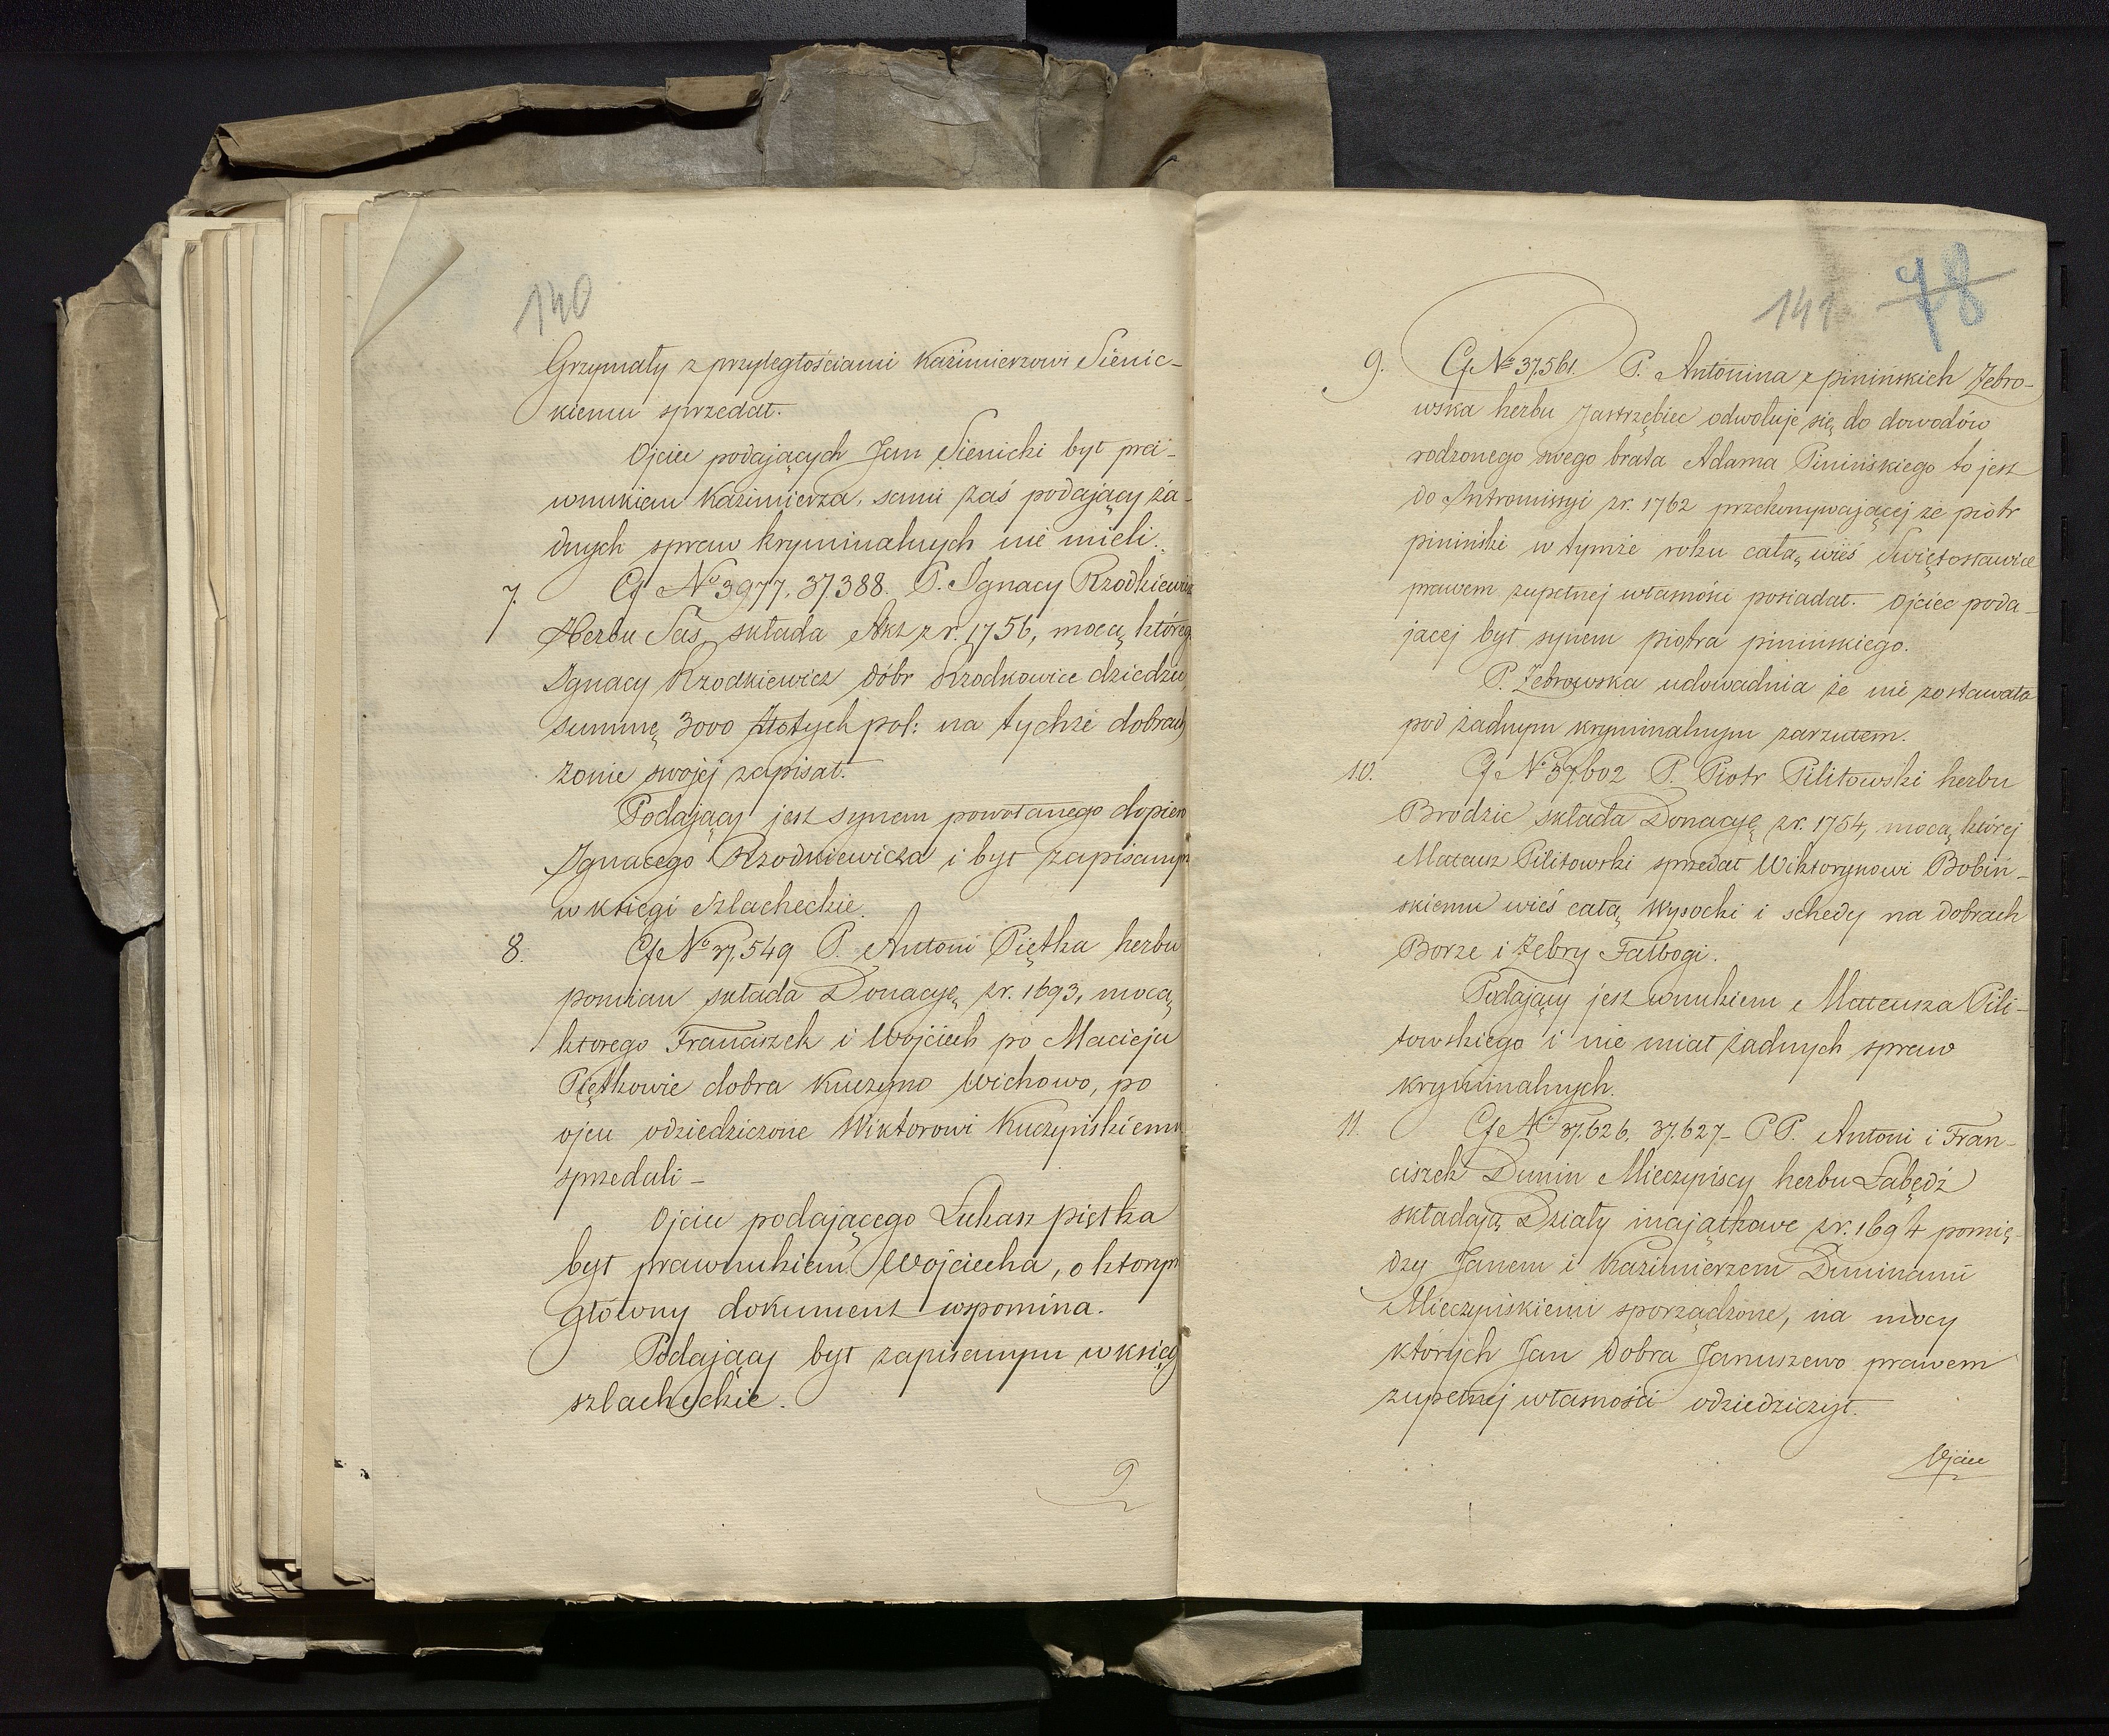 140
Grzymały z przyległościami Kazimierzowi Sienic-
kiemu sprzedał.
Ojciec podających Jan Sienicki był pra-
wnukiem Kazimierza, sami zaś podający ża-
dnych spraw kryminalnych nie mieli.
7. Cf No 3977. 37.388. P. Ignacy Rzodkiewicz
Herbu Sas, składa Akt z r. 1756, mocą któreg
Ignacy Rzodkiewicz dóbr Rzodkowice dziedzic
summę 3000 złotych pol: na tychże dobrach
żonie swojej zapisał.
Podający jest synem powołanego dopiero
Ignacego Rzodkiewicza i był zapisanym
w księgi szlacheckie.
8. Cf No 37.549 P. Antoni Piętka herbu
pomian składa Donacyę z r. 1693, mocą
ktorego Franciszek i Wojciech po Macieju
Piętkowie dobra Kuczyno Wichowo, po
ojcu odziedziczone Wiktorowi Kuczyńskiemu
sprzedali -
Ojciec podającego Łukasz piętka
był prawnukiem Wojciecha, o ktorym
główny dokument wspomina.
Podający był zapisanym w księg
szlacheckie.
9
141 78
9. Cf No 37.561. P. Antonina z pinińskich Żebro-
wska herbu Jastrzębiec odwołuje się do dowodów
rodzonego swego brata Adama Pinińskiego to jest
do Intromissyi z r. 1762 przekonywającej że piotr
piniński w tymże roku całą wieś Świętosławice
prawem zupełnej własności posiadał. Ojciec poda-
jacej był synem piotra pinińskiego.
P. Żebrowska udowadnia że nie zostawała
pod żadnym kryminalnym zarzutem.
10. Cf No 37.602 P. Piotr Pilitowski herbu
Brodzic składa Donacyę z r. 1754, mocą której
Mateusz Pilitowski sprzedał Wiktorynowi Bobiń-
skiemu wieś całą Wysocki i schedy na dobrach
Borze i Żebry Falbogi.
Podający jest wnukiem Mateusza Pili-
towskiego i nie miał żadnych spraw
kryminalnych.
11. Cf No 37.626. 37.627 - PP. Antoni i Fran-
ciszek Dunin Mieczyńscy herbu Łabędź
składają Działy majątkowe z r. 1694 pomię-
dzy Janem i Kazimierzem Duninami
Mieczyńskiemi sporządzone, na mocy
których Jan dobra Januszewo prawem
zupełnej własności odziedziczył.
Ojciec